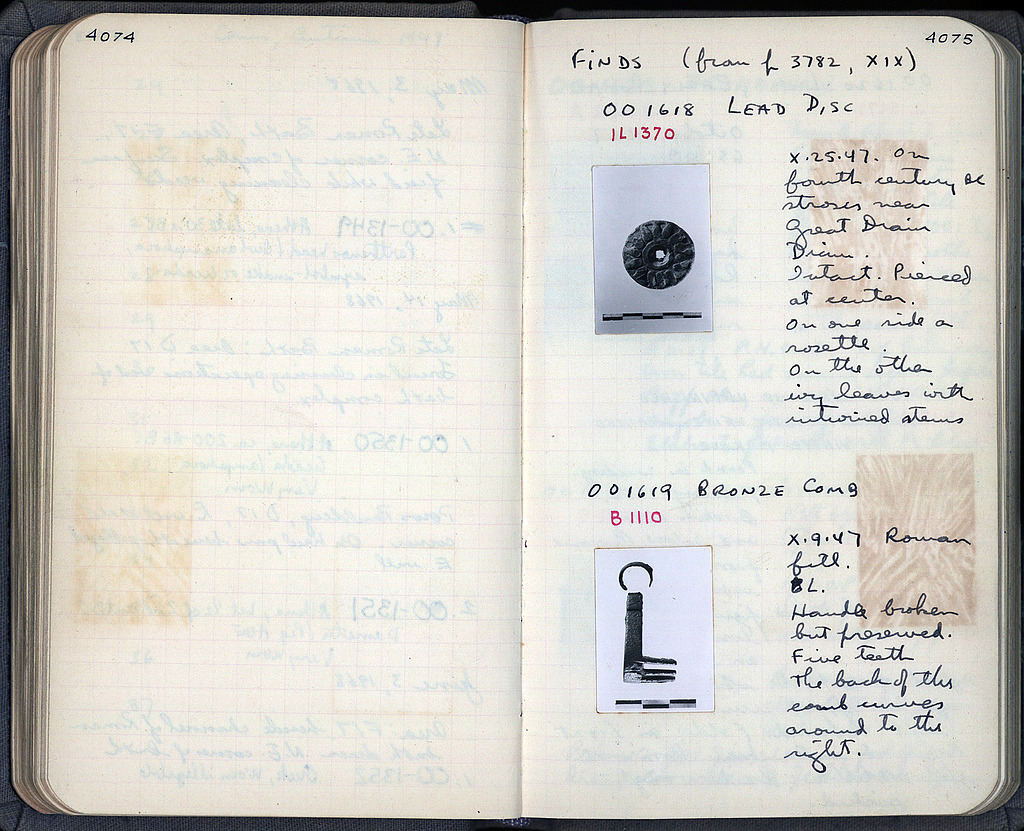 4074
4075
FINDS (from p 3782, XIX)
OO 1618 LEAD DISC
IL 1370
X.25.47. On
fourth century BC
stroses near
Great Drain
Diam.
Intact. Pierced
at center.
On one side a
rosette.
On the other
ivy leaves with
intwined stems
OO 1619 BRONZE COMB
B 1110
X.9.47 Roman
fill.
BL.
Handle broken
but preserved.
Five teeth
The back of this
comb curves
around to the
right.